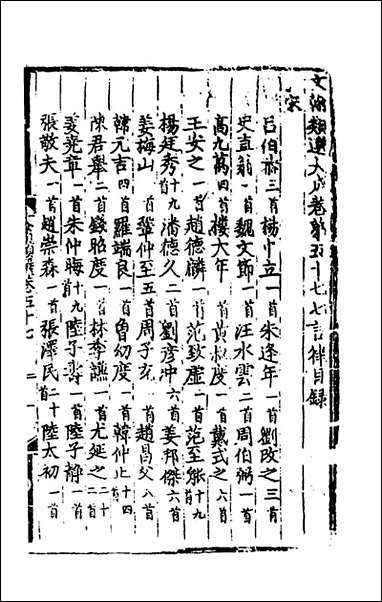 文翰類選大成卷第五十七七言律目錄
宋
呂伯恭三首楊中立一首朱逢年一首劉改之三首
史直翁一首魏文節一首汪水雲二首周伯弼一首
高九萬四首樓大年一首黃叔度一首戴式之六首
王安之一首趙德麟一首范致虛一首范至能十九首
楊廷秀十九首潘德久二首劉彥冲六首姜邦傑六首
姜梅山一首鞏仲至五首周子充一首趙昌父八首
韓元吉四首羅端良一首魯幼度一首韓仲止十四首
陳君舉二首錢昭度一首林季謙一首尤延之二十二首
姜堯章一首朱仲晦十九首陸子壽一首陸子靜一首
張敬夫一首趙崇森一首張澤民二十首陸太初一首